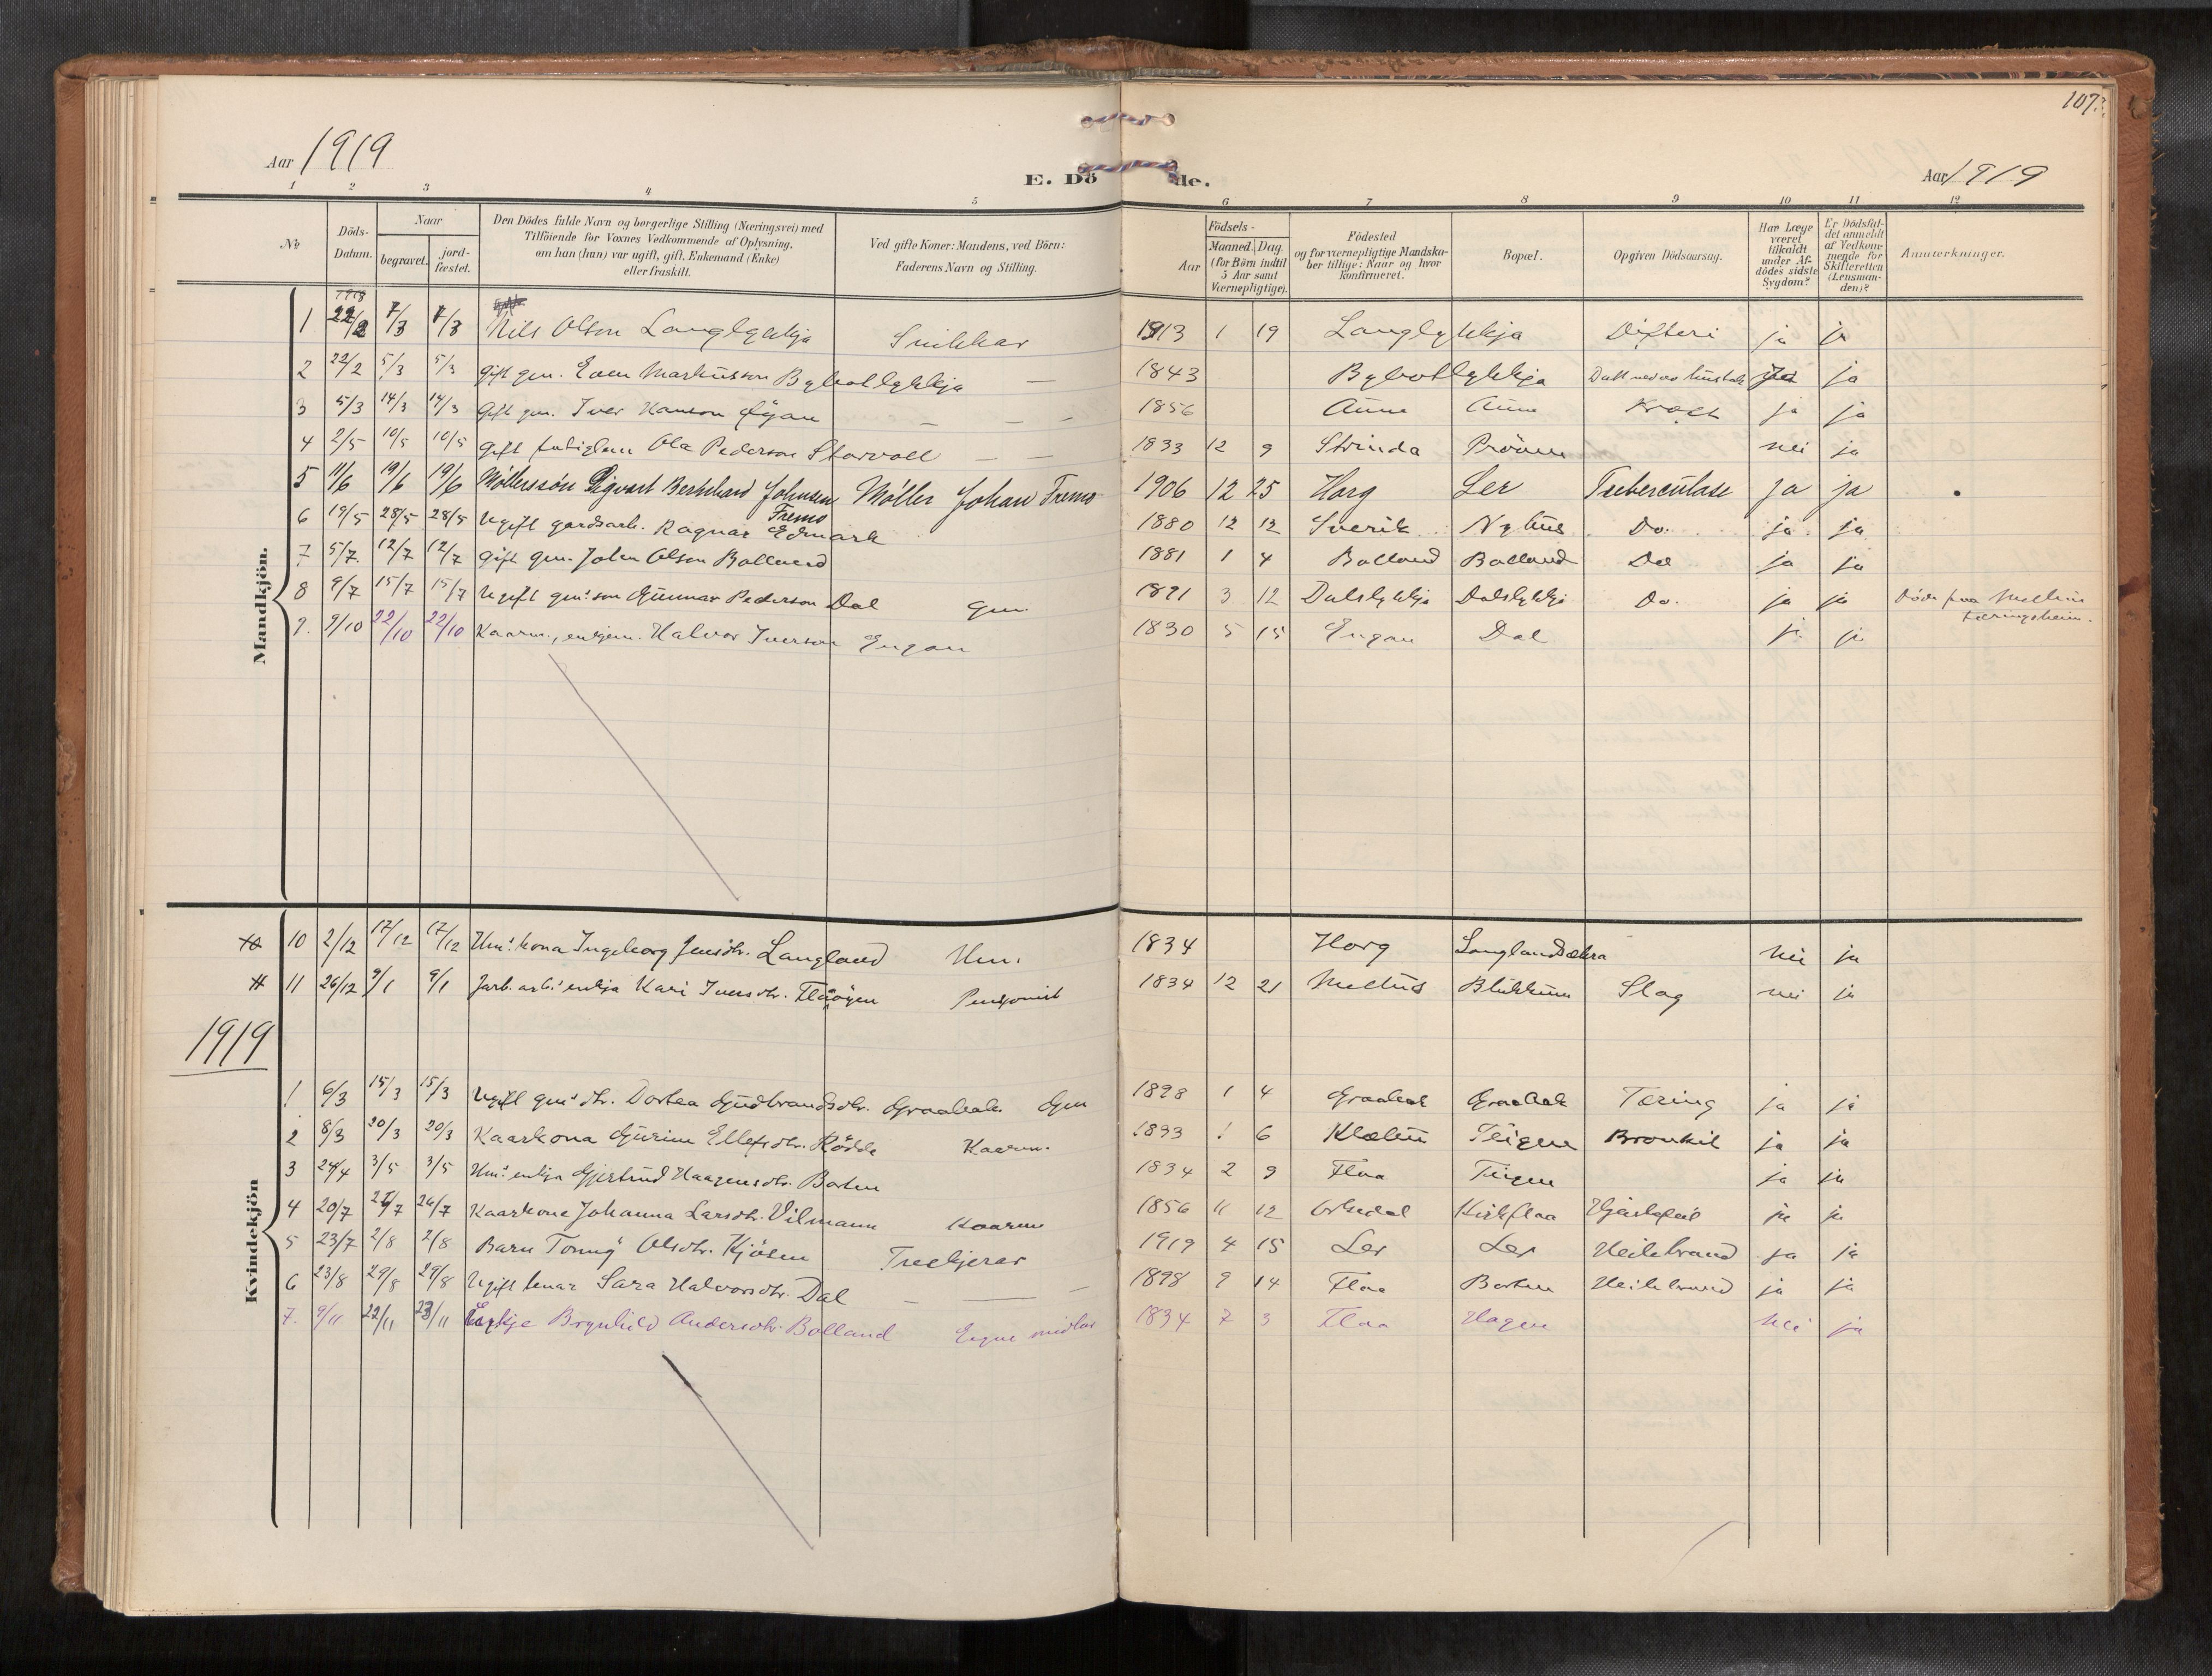 107
Aar 1919
E. Dö de.
Aar 1919
1 2 3 4 5 6 7 8 9 10 11 12
No
Döds-Datum.
Naar
begravet.
jord-fæstet.
Den Dödes fulde Navn og borgerlige Stilling (Næringsvei) med
Tilföiende for Voxnes Vedkommende af Oplysning,
om han (hun) var ugift, gift, Enkemand (Enke)
eller fraskilt.
Ved gifte Koner: Mandens, ved Börn:
Faderens Navn og Stilling.
Födsels-
Aar
Maaned. Dag.
(for Börn indtil
5 Aar samt
Værnepligtige).
Födested
og for værnepligtige Mandska-
ber tillige: Naar og hvor
konfirmeret.
Bopæl.
Opgiven Dödsaarsag.
Har Læge
været
tilkaldt
under Af-
dödes sidste
Sygdom?
Er Dödsfal-
det anmeldt
af Vedkom-
mende for
Skifteretten
(Lensman-
den)?
Anmærkninger.
Mandkjön.
1918
1 22/2 7/3 7/3 Nils Olson Langlykkja Snikkar 1913 1 19 Langlykkja Difteri ja ja
2 22/2 5/3 5/3 Gift gm. Even Markusson Bybotlykkja — 1843 Bybotlykkja Datt ned av ja ja
3 5/3 14/3 14/3 Gift gm. Iver Hanson Øyan — — — 1856 Aune Aune Kræft ja ja
4 2/5 10/5 10/5 Gift Ola Pederson Storvoll — — 1833 12 9 Strinda Prööven nei ja
5 11/6 19/6 19/6 Møllerssøn Sigvart Bernhard Johnsen Fremo Møller Johan Fremo 1906 12 25 Horg Ler Tuberculose ja ja
6 19/5 28/5 28/5 Ugift gardsarb. Ragnar Edmark 1880 12 12 Sverik Nyhus Do. ja ja
7 5/7 12/7 12/7 Gift gm. John Olson Bolland 1881 1 4 Bolland Bolland Do ja ja
8 9/7 15/7 15/7 Ugift gm.s son Gunnar Pederson Dal Gm. 1891 3 12 Dalslykkja Dalslykkja Do. ja ja Döde paa Melhus
tæringsheim.
9. 9/10 22/10 22/10 Kaarm., enkjem. Halvor Iverson Engan 1830 5 15 Engan Dal ja ja
10 2/12 17/12 17/12 Hm.s kona Ingeborg Jensdtr. Langland Hm. 1834 Horg Langlandsætra nei ja
11 26/12 9/1 9/1 Jarb. arb.s enkja Kari Iversdtr. Flåöyen Pensjonist 1834 12 21 Melhus Blekkum Slag nei ja
1919
Kvindekjön
1 6/3 15/3 15/3 Ugift gm.s dtr. Dortea Gudbrandsdtr. Graabak Gm 1898 1 4 Graabak Graabak Tæring ja ja
2 8/3 20/3 20/3 Kaarkona Gurine Ellefsdtr. Rödde Kaarm. 1833 1 6 Klæbu Teigen Bronkit ja ja
3 24/4 3/5 3/5 Hm.s enkja Gjertrud Haagensdtr. Borten 1834 2 9 Flaa Teigen ja ja
4 20/7 26/7 26/7 Kaarkona Johanna Larsdtr. Vilmann Kaarm 1856 11 12 Orkedal Kirkflaa Hjertefeil ja ja
5 23/7 2/8 2/8 Barn Tonny Olsdtr. Kjösen Treskjerar 1919 4 15 Ler Ler Heilebrand ja ja
6 23/8 29/8 29/8 Ugift tenar Sara Halvorsdtr. Dal — — — 1898 9 14 Flaa Borten Heilebrand ja ja
7. 9/11 22/11 23/11 Enkje Brynhild Andersdtr. Bolland Eigne midlar 1834 7 3 Flaa Hagen nei ja